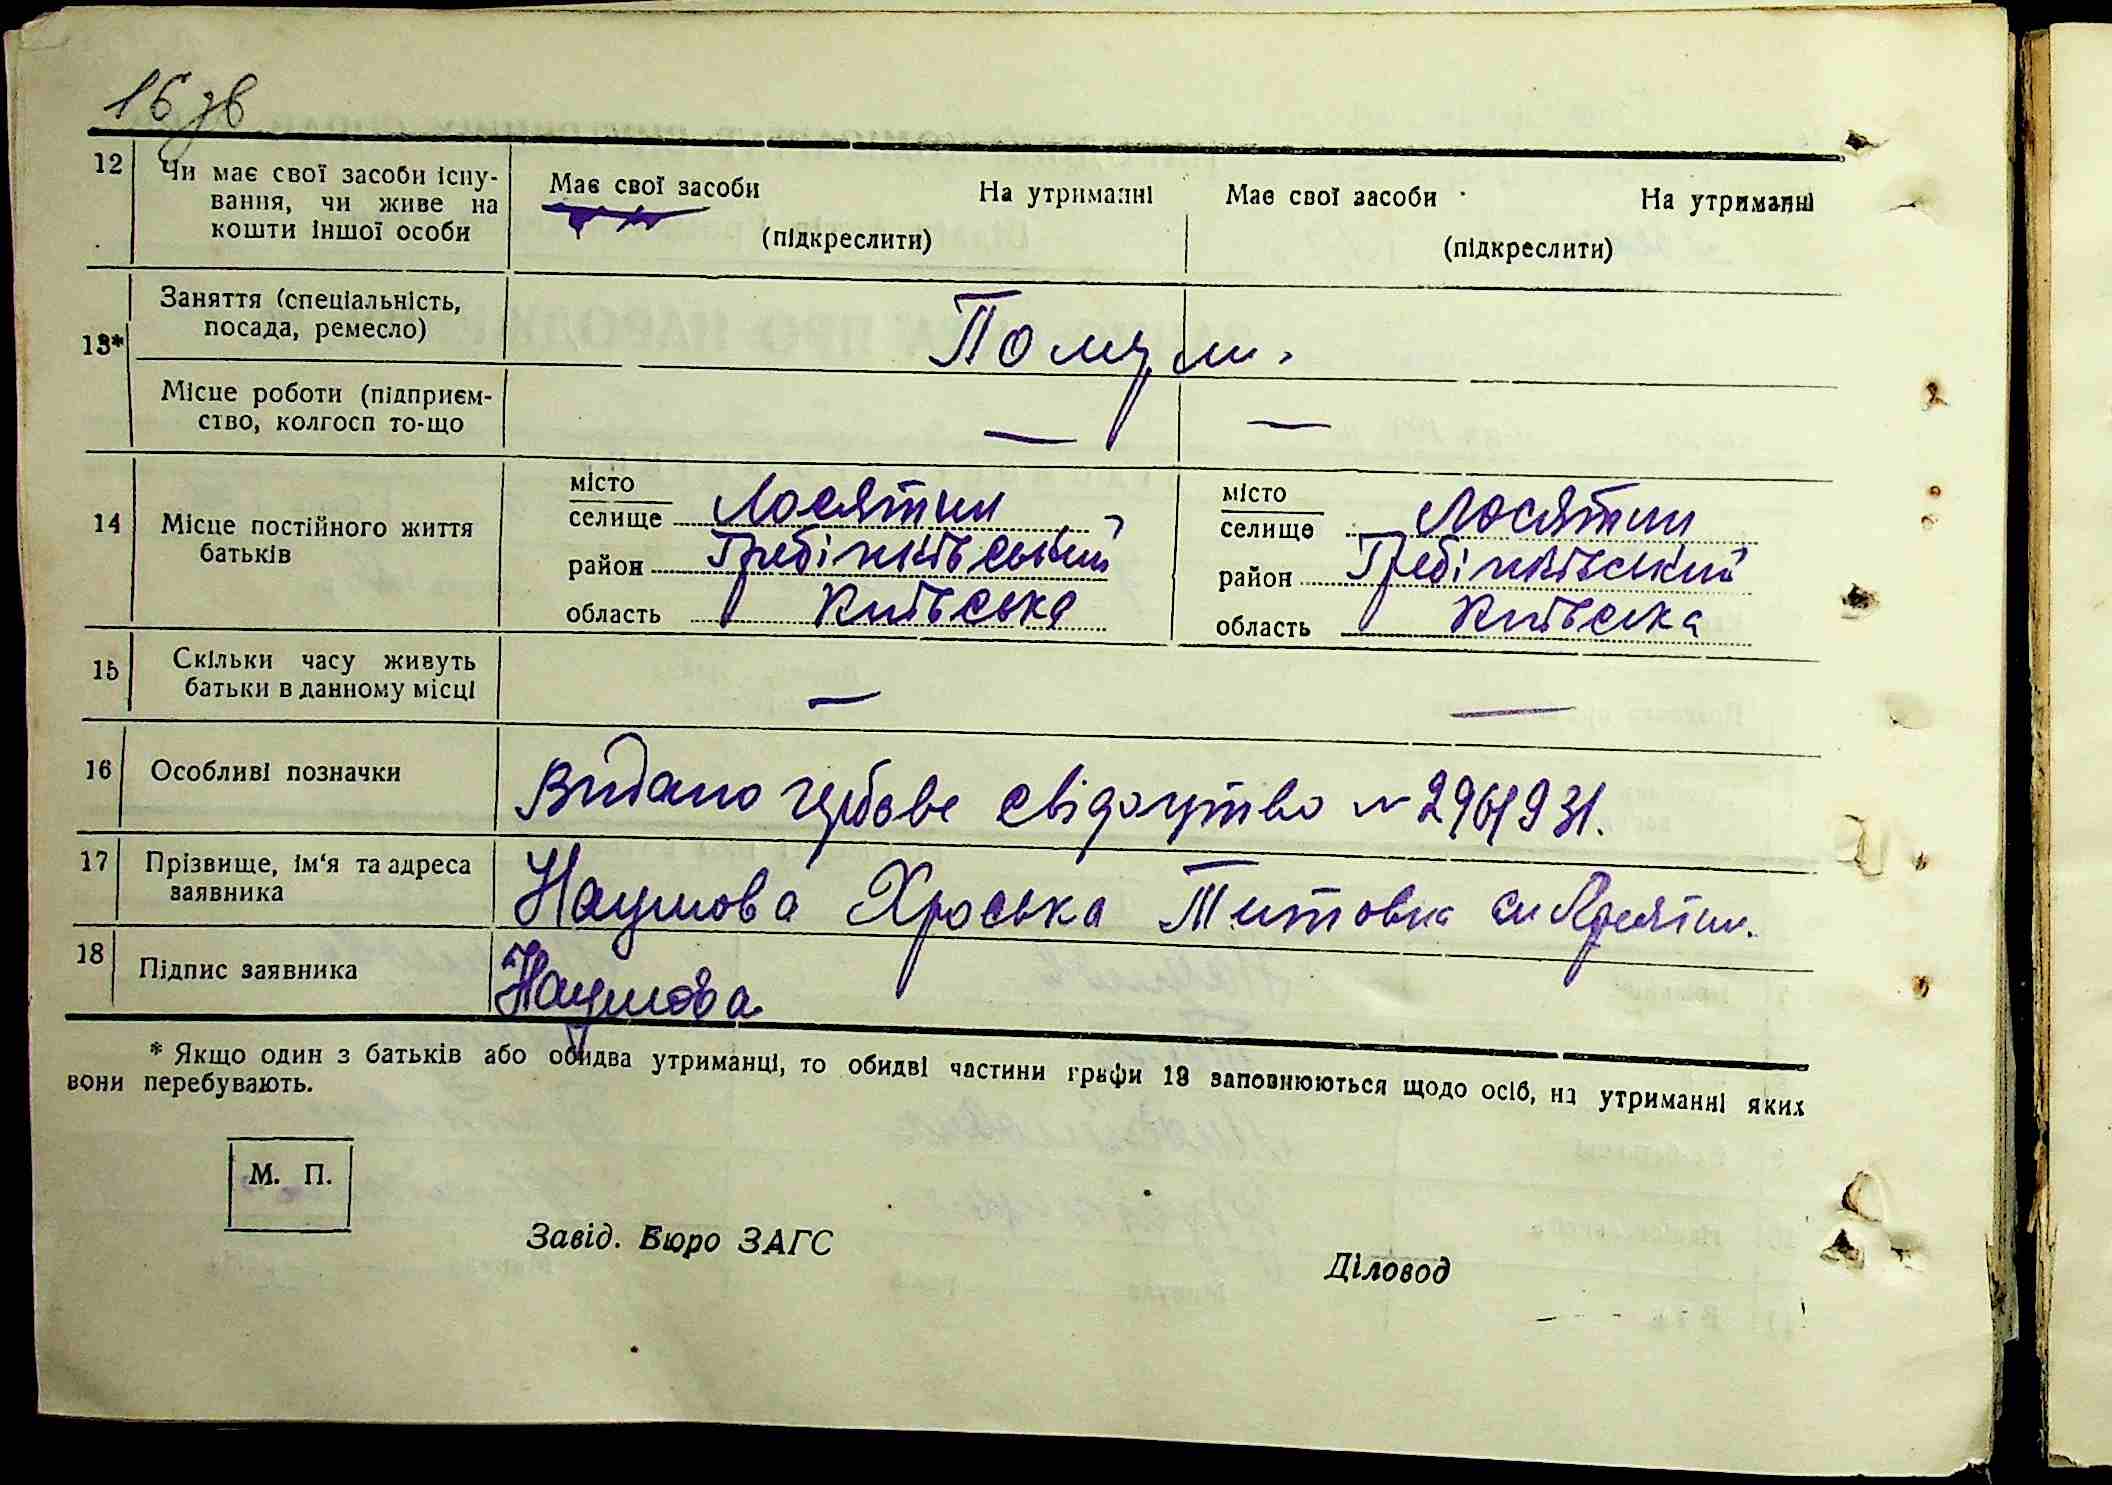 16 зв
12 Чи має свої засоби існу-
вання, чи живе на
кошти іншої особи
Має свої засоби На утриманні
(підкреслити)
Має свої засоби На утриманні
(підкреслити)
13* Заняття (спеціальність,
посада, ремесло)
Місце роботи (підприєм-
ство, колгосп то-що
— —
14 Місце постійного життя
батьків
місто
селище Лосятин
район Гребінківський
область Київська
місто
селище Лосятин
район Гребінківський
область Київська
15 Скільки часу живуть
батьки в данному місці
— —
16 Особливі позначки
Видано гербове свідоцтво № 2961931.
17 Прізвище, ім'я та адреса
заявника
Наумова Хроська Титовна
18 Підпис заявника
Наумова
* Якщо один з батьків або обидва утриманці, то обидві частини графи 13 заповнюються щодо осіб, на утриманні яких
вони перебувають.
М. П.
Завід. Бюро ЗАГС
Діловод